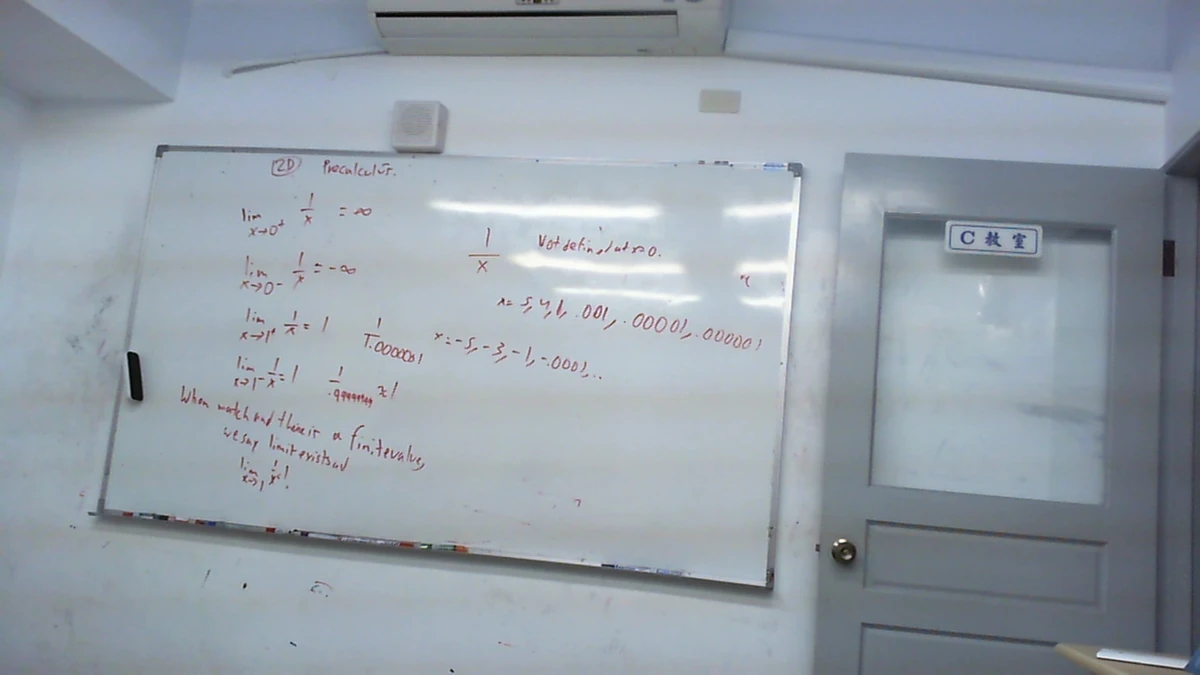 2D Precalculus.
lim x→0⁺ 1/x = ∞
lim x→0⁻ 1/x = -∞
lim x→1⁺ 1/x = 1 1/1.0000001
lim x→1⁻ 1/x = 1 ≈ 1
When match and there is a finite value,
we say limit exists and
lim x→1 1/x
1/x Not defined at x=0.
x = .001, .00001, .000001
x = -5, -3, -1, -.0001, ...
C 教室